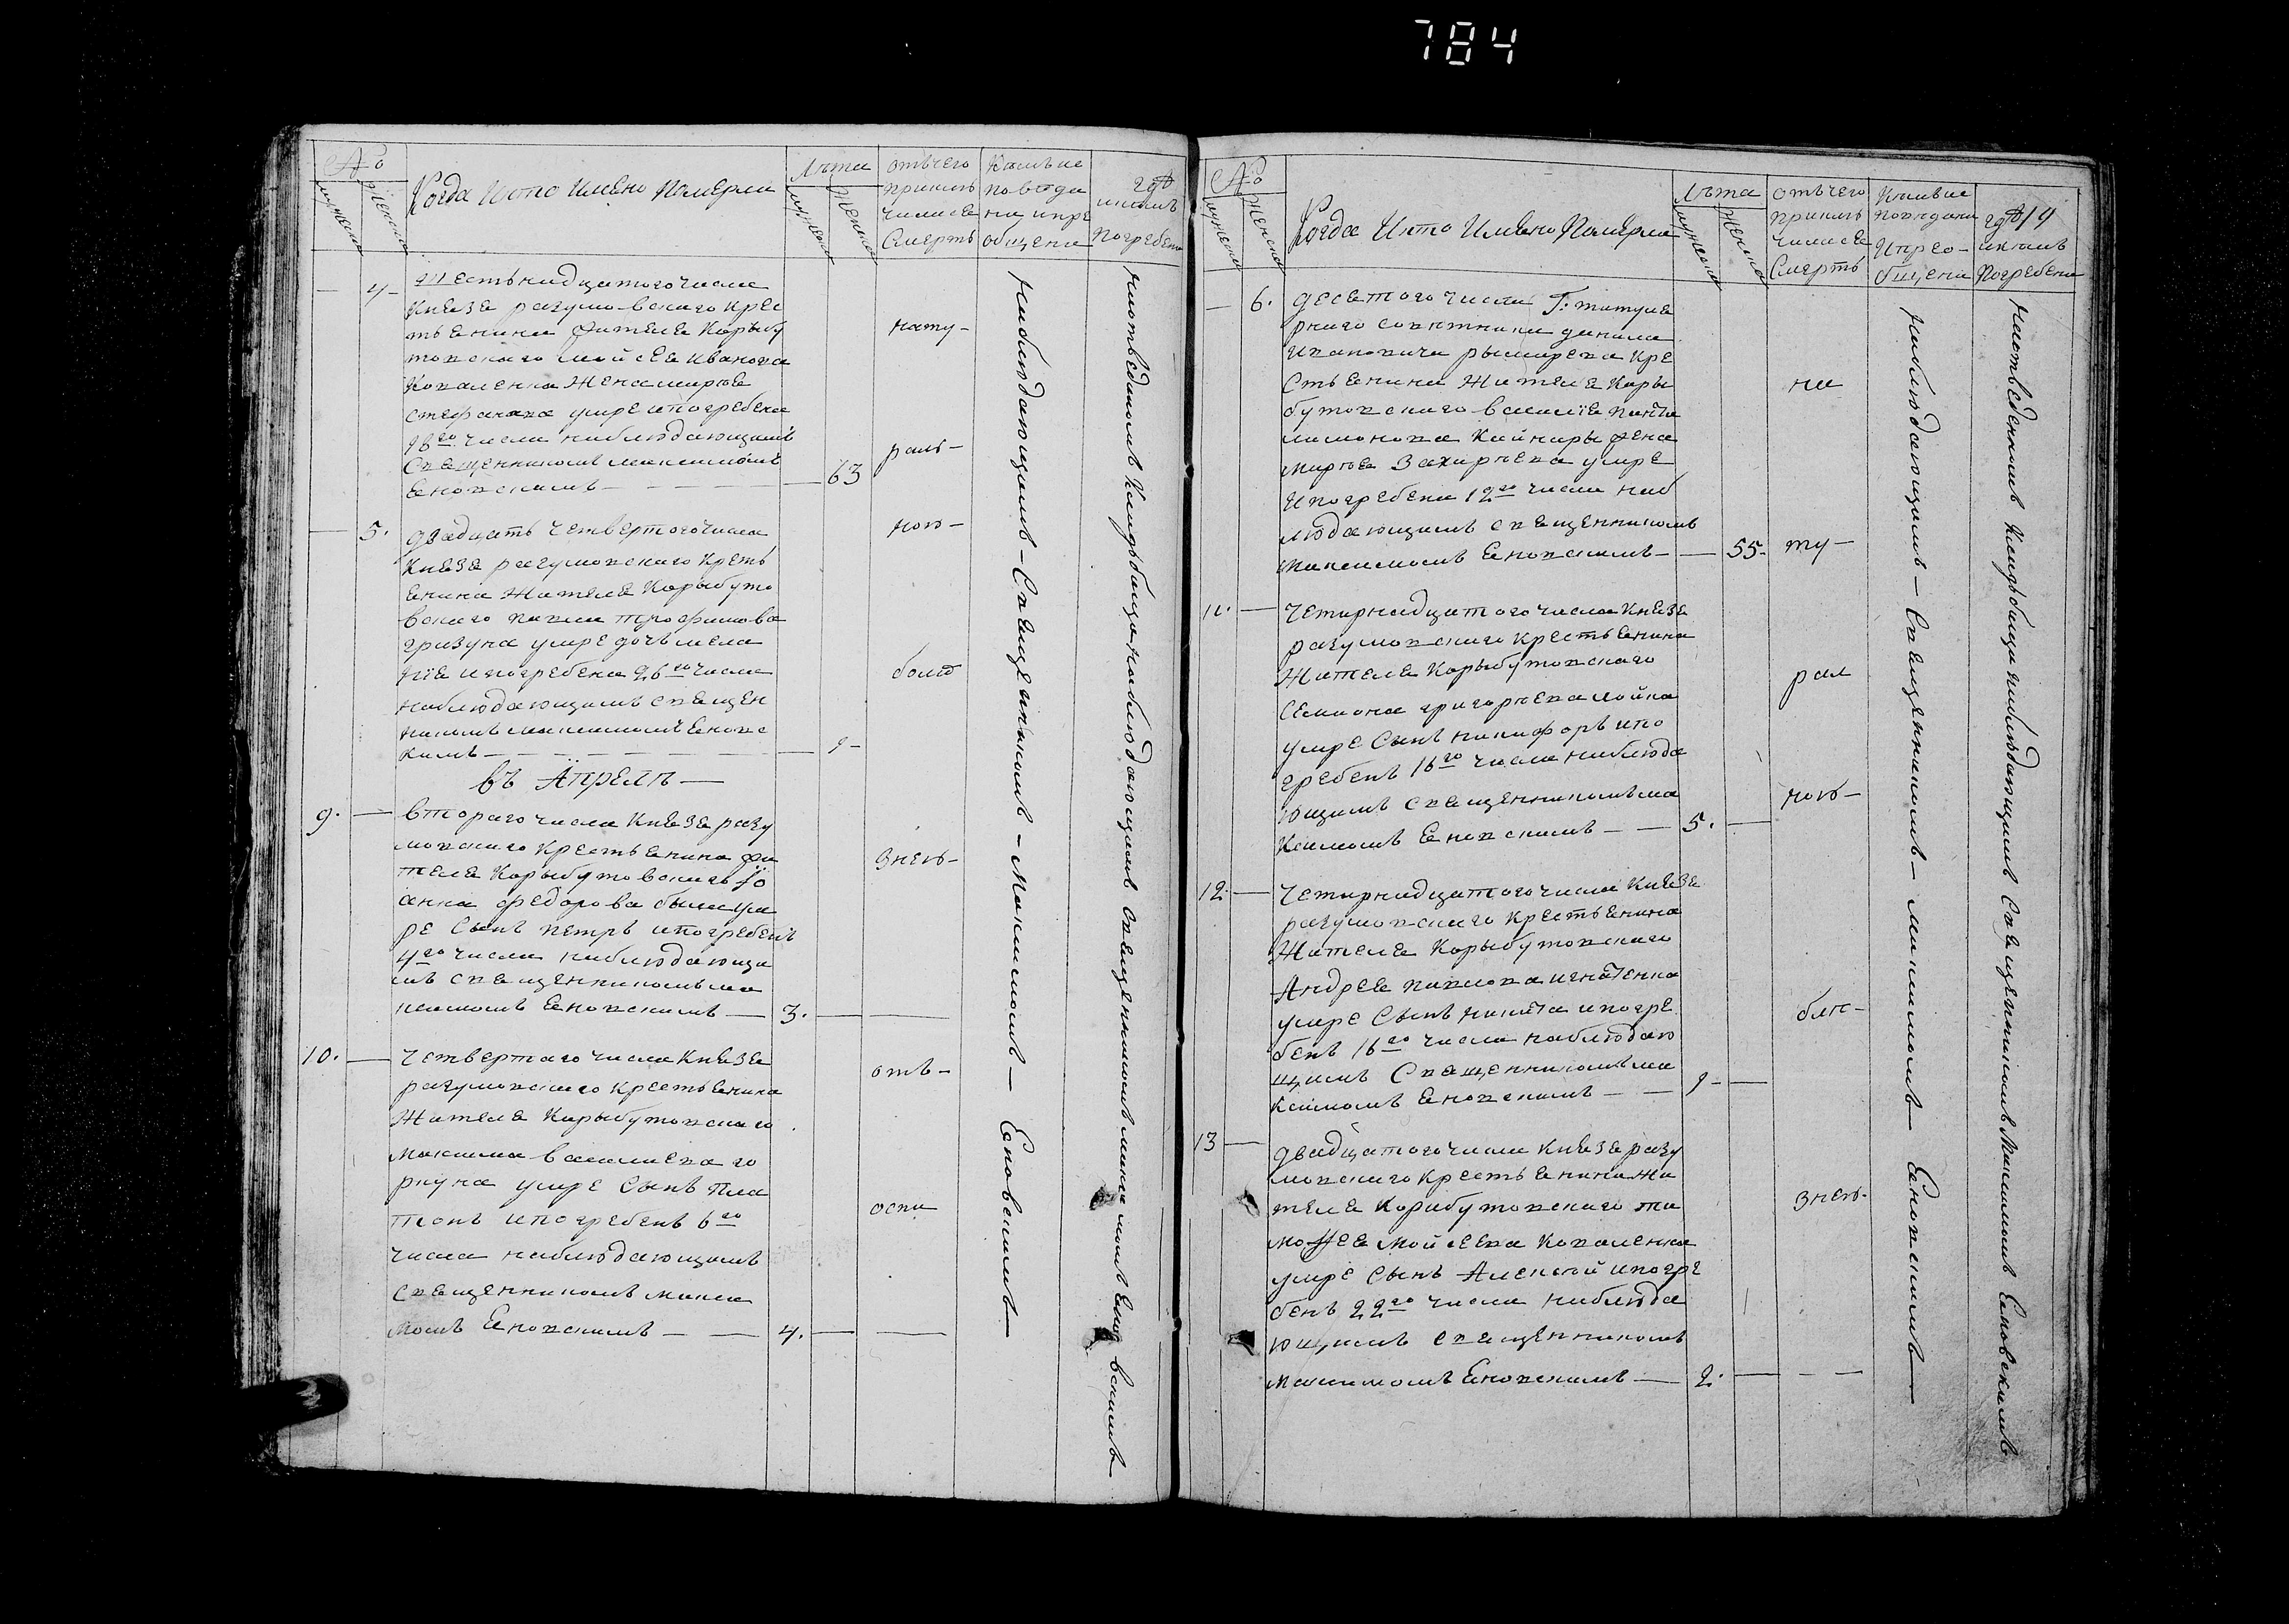 784
№
мужеска
женска
Когда Ихто Имено Померли
Лѣта
мужеска
женска
отъчего
приклю
чиласе
Смерть
Кымъис
поведа
ни ипрі
общени
гдѣ
икимъ
Погребени
4
шестьнадцатогочисла
Князя разумовского крес
тьенина жителя Корыбу
товского мойсея Иванова
Коваленка жена марія
стефанова умре ипогребена
18го числа наблюдающимъ
Священникомъ максимомъ
Еновскимъ
63
5.
двадцать четвертогочисла
Князя разумовского Кретъ
енина жителя Корыбуто
вского павла трофимова
гризуна умре дочъ мела
нія ипогребена 26го числа
наблюдающимъ священ
никомъ максимомъ Еновс
кимъ
1
въ Апрелѣ
9.
втораго числа Князя разу
мовского крестьенина жи
теля Корыбутовскаго Іо
анна федорова быма ум
ре Сынъ петръ ипогребенъ
4го числа наблюдающи
мъ священникомъ ма
ксимомъ Еновскимъ
3.
10.
Четвертаго числа Князя
разумовскаго крестьенина
Жителя Корыбутовскаго
максима василиева го
ркуна умре Сынъ Пла
тонъ ипогребенъ 6го
числа наблюдающимъ
священникомъ макси
момъ Еновскимъ
4.
нату-
раль-
ною-
болѣ
знею-
отъ-
оспи
наблюдающимъ - Священникомъ - Максимомъ - Еновскимъ
наотведеномъ кладбищи наблюдающимъ священникомъ максимомъ Еновскимъ
№
мужеска
женска
Когда Ихто Имено Померли
Лѣта
мужеска
женска
отъчего
приклю
чиласе
Смерть
Кимъис
поведани
Ипрео-
бщени
гдѣ
икимъ
Погребени
19
6.
десетого числа Г: титуля
рного совѣтника данила
Ивановича рымарева кре
стьенина Жителя Коры
бутовского василіе панте
лимонова Кайнары жена
марія Захаріева умре
Ипогребена 12го числа наб
людающимъ священникомъ
максимомъ Еновскимъ
55
11.
четирнадцатого числа Князя
разумовского крестьенина
Жителя Корыбутовскаго
семиона григоріева мойна
умре Сынъ никифоръ ипо
гребенъ 16го числа наблюда
ющимъ священникомъ ма
ксимомъ Еновскимъ
5.
12.
Четирнадцатого числа Князя
разумовского крестьенина
Жителя Корыбутовского
Андрея павлова игнатенка
умре Сынъ никита ипогре
бенъ 16го числа наблюдаю
щимъ Священникомъ ма
ксимомъ Еновскимъ
1
13
двадцатого числа Князя разу
мовского крестьенина жи
теля Корибутовского ти
мофея мойсеева Коваленка
умре Сынъ Алексѣй ипогре
бенъ 22го числа наблюда
ющимъ священникомъ
максимомъ Еновскимъ
2.
на
ту-
рал
ною-
болѣ-
знею-
наблюдающимъ - Священникомъ - максимомъ Еновскимъ
наотведенномъ кладбищи наблюдающимъ священникомъ Максимомъ Еновскимъ